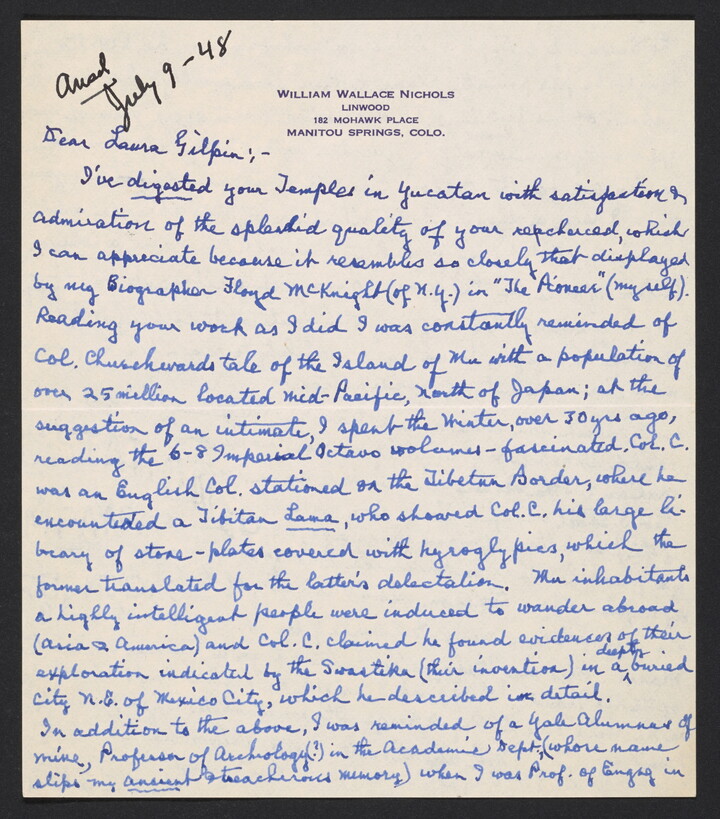 Ansd
July 9-48
WILLIAM WALLACE NICHOLS
LINWOOD
182 MOHAWK PLACE
MANITOU SPRINGS, COLO.
Dear Laura Gilpin:,-
I've digested your Temples in Yucatan with satisfaction &
admiration of the splendid quality of your reacherced, which
I can appreciate because it resembles so closely that displayed
by my Biographer Floyd McKnight (of N.Y.) in "The "Pioneer" (myself).
Reading your work as I did I was constantly reminded of
Col. Churchwards tale of the Island of Mu with a population of
over 25 million located mid-Pacific, north of Japan; at the
suggestion of an intimate, I spent the Winter, over 30 yrs ago,
reading the 6-8 Imperial Octavo volumes - fascinated. Col. C.
was an English Col. stationed on the Tibetan Border, where he
encounteded a Tibitan Lama, who showed Col. C. his large li-
brary of stone-plates covered with hyroglypics, which the
former translated for the latter's delectation. Mu inhabitants
a highly intelligent people were induced to wander abroad
(Asia & America) and Col. C. claimed he found evidences of their
exploration indicated by the Swastika (their invention) in a deeply buried
City N.E. of Mexico City, which he described in detail.
In addition to the above, I was reminded of a Yale Alumnus of
mine, Professor of Archiology(?) in the Academic Dept., (whose name
slips my ansient & treacherous memory) when I was Prof. of Engng in